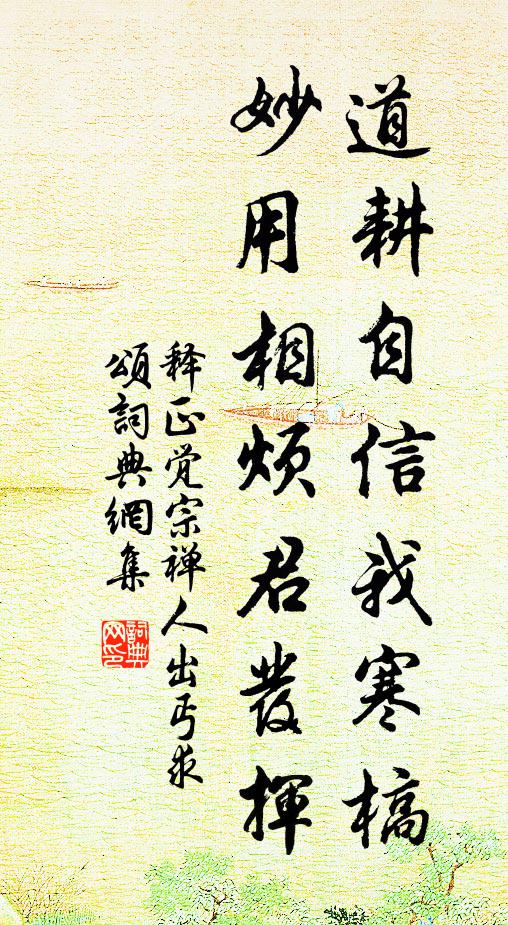 道耕自信我寒槁
妙用相烦君發揮
释正觉宗禅人出丐求
頌詞典網集
詞典
网印